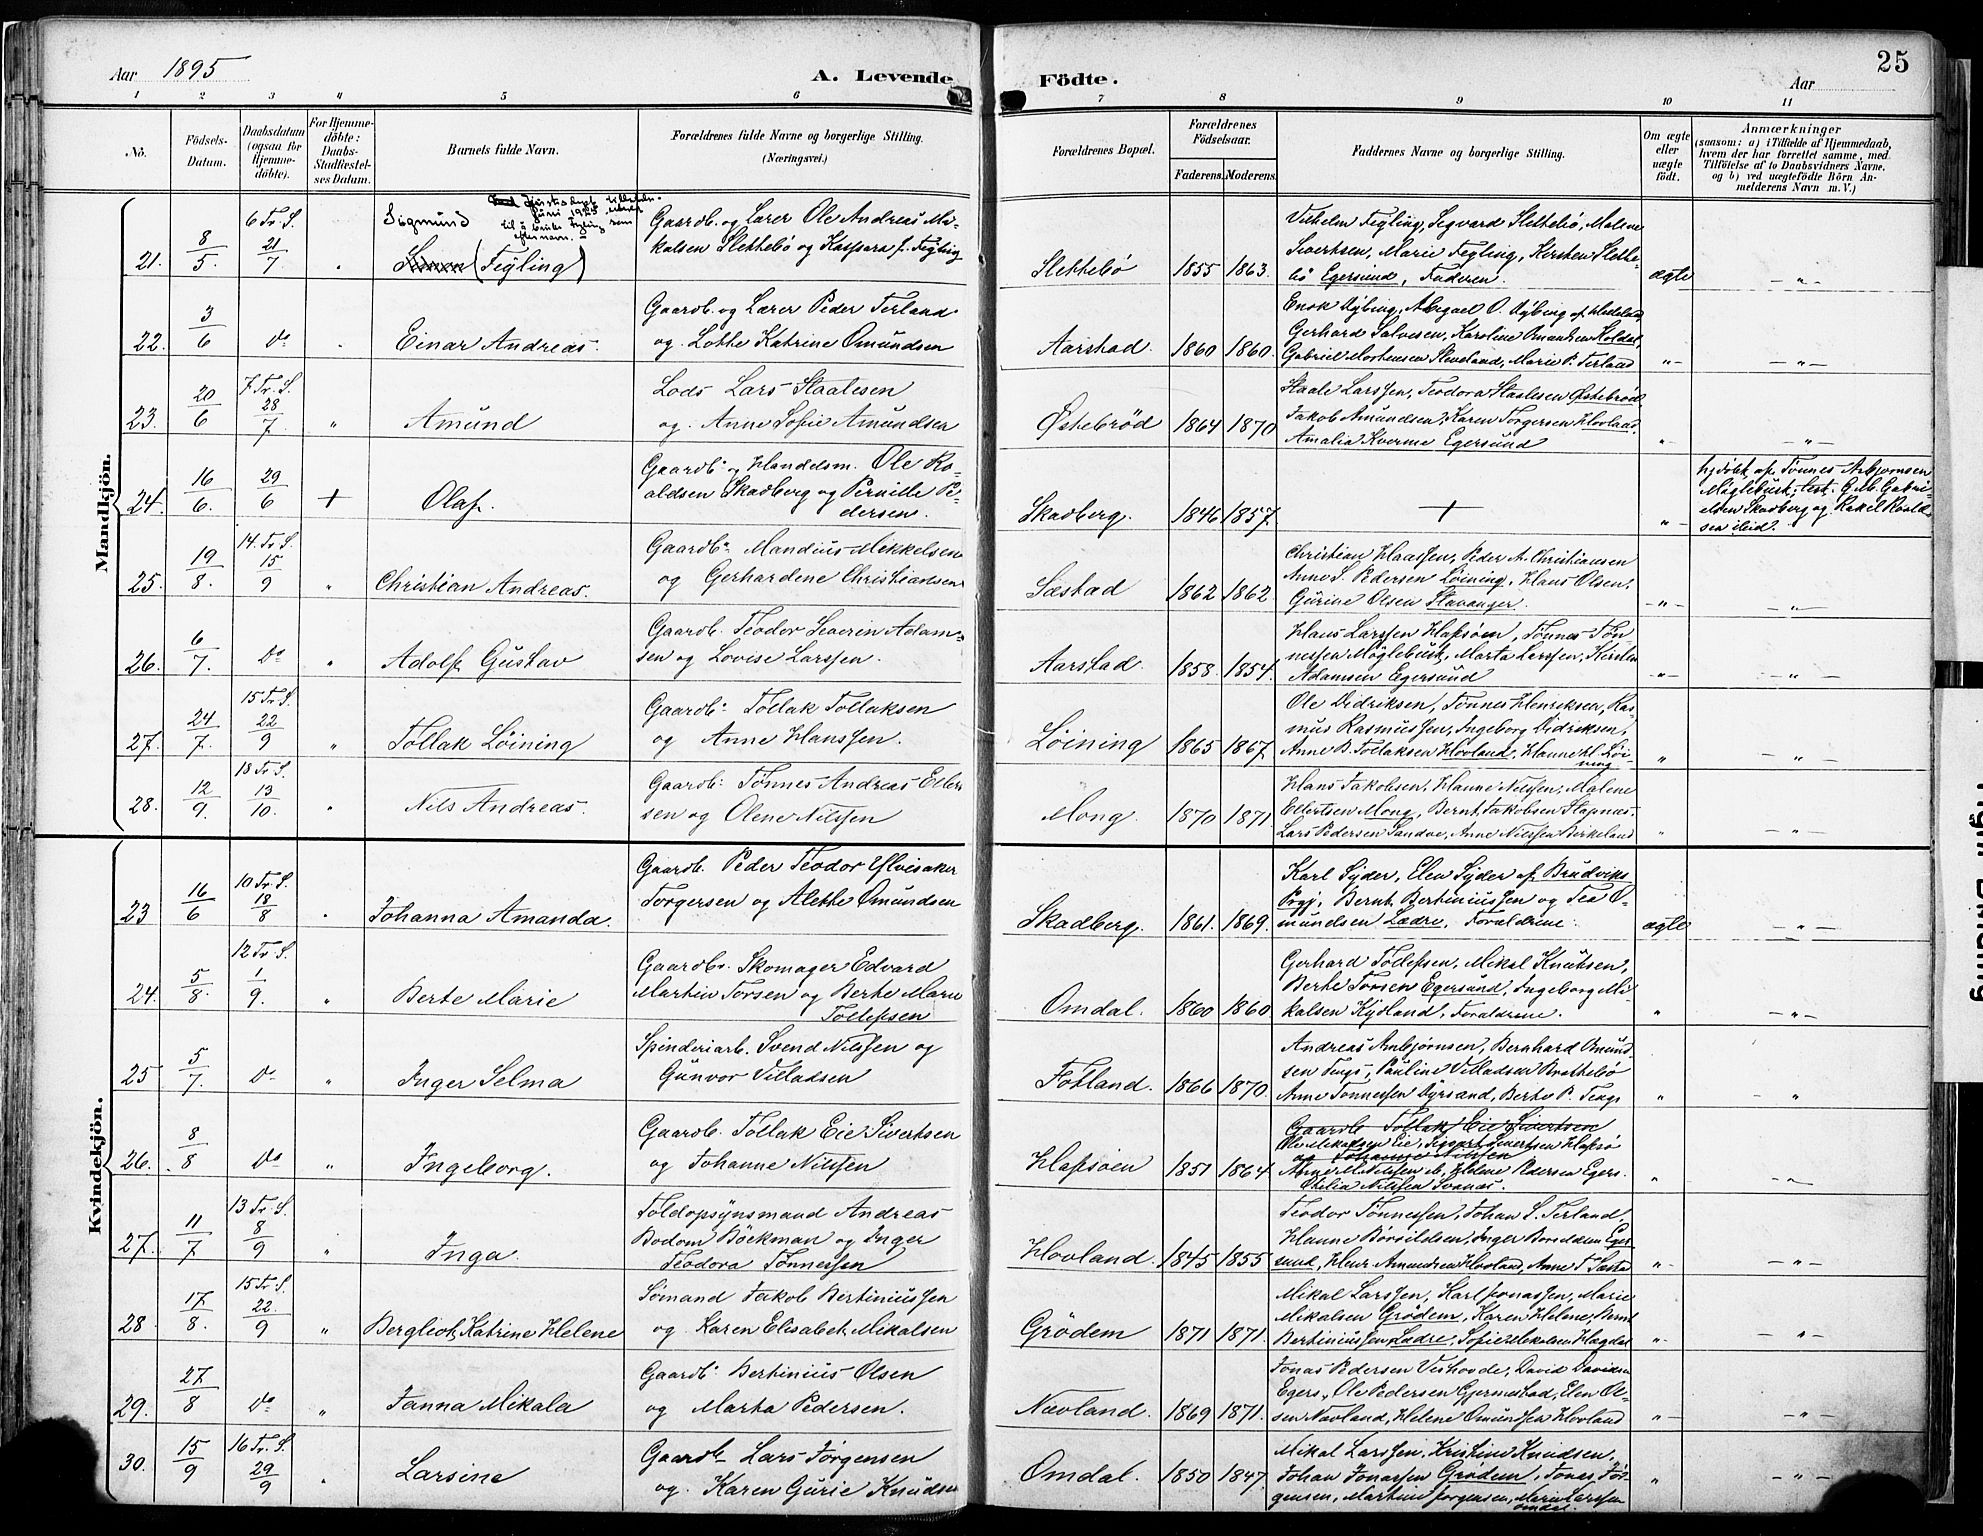 Aar 1895
A. Levende
Födte.
Aar
25
1 2 3 4 5 6 7 8 9 10 11
No.
Födsels-
Datum.
Daabsdatum
(ogsaa for
Hjemme-
döbte).
For Hjemme-
döbte:
Daabs-
Stadfæstel-
ses Datum.
Barnets fulde Navn.
Forældrenes fulde Navne og borgerlige Stilling.
(Næringsvei.)
Forældrenes Bopæl.
Forældrenes
Födselsaar.
Faderens. Moderens.
Faddernes Navne og borgerlige Stilling.
Om ægte
eller
uægte
födt.
Anmærkninger
(saasom: a) i Tilfælde af Hjemmedaab,
hvem der har forrettet samme, med
Tilföielse af to Daabsvidners Navne,
og b) ved uægtefödte Börn An-
melderens Navn m. V.)
Mandkjön.
21. 8/5 6 Tr. S. 21/7 "
Sigmund
(Fegling)
Gaardb. og Lærer Ole Andreas Mi-
kalsen Slettebö og Kaspara f. Fegling
Slettebö 1855 1863.
Vilhelm Fegling, Segvard Slettebö, Malene
Sivertsen, Marie Fegling, Kirsten Slette-
bö Egersund, Faderen.
ægte — " —
22. 3/6 do "
Einar Andreas.
Gaardb. og Lærer Peder Terland
og Lotte Katrine Omundsen
Aarstad. 1860 1860.
Gerhard Salvesen, Karoline Omundsen Holdal,
Gabriel Mortensen Sleveland, Marie P. Terland
"– — " —
23. 20/6 7. Tr. S. 28/7 "
Amund
Lods Lars Staalesen
og Anne Sofie Amundsen
Østebröd 1864 1870
Staale Larssen, Teodora Staalesen Østebröd,
Jakob Amundsen, Karen Torgersen Hovland,
Amalia Kverme Egersund
"– — " —
24. 16/6. 29/6 +
Olaf.
Gaardb. og Handelsm. Ole Ro-
aldsen Skadberg og Pernille Pe-
dersen.
Skadberg. 1846 1857.
+
"–
hjdöbt af Tönnes Asbjornsen
Möglebust; test. G.M. Gabri-
elsen Skadberg og Rakel Roald-
sen ibid.
25. 19/8. 14. Tr. S. 15/9 "
Christian Andreas.
Gaardb. Mandius Mikkelsen
og Gerhardene Christiansen
Sæstad 1862 1862.
Christian Haassen, Peder A. Christiansen
Anne S. Pedersen Löining, Hans Olsen,
Gurine Olsen Stavanger.
– " – — " —
26. 6/7. do "
Adolf Gustav
Gaardb. Teodor Severin Adam-
sen og Lovise Larssen.
Aarstad 1858. 1854.
Hans Larssen Hafsöen, Tönnes Tön-
nessen Möglebust, Marta Larssen, Kirsten
Adamsen Egersund
"– — " —
27. 24/7. 15 Tr. S. 22/9 "
Tollak Löining
Gaardb. Tollak Tollaksen
og Anne Hanssen.
Löining 1865 1867.
Ole Didriksen, Tönnes Henriksen, Ras-
mus Rasmussen, Ingeborg Didriksen,
Anne B. Tollaksen Hovland, Hanne H. Löi-
ning
" — " —
28. 12/9. 18 Tr. S. 13/10. "
Nils Andreas.
Gaardb. Tönnes Andreas Ellert-
sen og Olene Nilssen
Mong. 1870 1871
Hans Jakobsen, Hanne Nilssen, Malene
Ellertsen Mong, Bernt Jakobsen Stapnes,
Lars Pedersen Sandve, Anne Nilssen Birkeland
" — " —
Kvindekjön.
23 16/6 10 Tr. S. 18/8 "
Johanna Amanda.
Gaardb. Peder Teodor Ylvisaker
Torgersen og Alette Omundsen
Skadberg. 1861. 1869.
Karl Syder, Elen Syder af Brudviks
Prgj, Bernt Bertiniussen og Tea O-
mundsen Ladre, Forældrene.
ægte — " —
24. 5/8. 12 Tr. S. 1/9. "
Berte Marie
Gaardbr. Skomager Edvard
Martin Torsen og Berte Marie
Tollefsen
Omdal. 1860 1860
Gerhard Tollefsen, Mikal Knutsen,
Berte Torsen Egersund, Ingeborg Mi-
kalsen Kydland, Forældrene.
" — " —
25 5/7. do "
Inger Selma
Spinderiarb. Svend Nilssen og
Gunvor Villadsen
Fotland. 1866 1870.
Andreas Asbjornsen, Bernhard Omund-
sen Tengs, Pauline Villadsen Brattebö
Anne Tönnessen Dyrsand, Berte P. Tengs
" "
26. 8/8 do "
Ingeborg.
Gaardb. Tollak Eie Sivertsen
og Johanne Nilssen
Hafsöen 1851 1864.
Gaardb. Tollak Eie Sivertsen
og Johanne Nilssen
Ole Mikalsen Eie, Sigvart Sivertsen Hafsö
Anne M. Nilssen ib, Helene Pedersen Egers.
Otelia Nilssen Svanes.
" — " —
27. 11/7 13 Tr. S. 8/9 "
Inga.
Toldopsynsmand Andreas
Bodom Böckman og Inger
Teodora Tönnessen
Hovland. 1845 1855
Teodor Tönnessen, Johan S. Terland,
Hanne Börildsen, Inger Börildsen Eger-
sund, Henr. Amundsen Hovland, Anne T. Sæstad
"– — " —
28 17/8. 15 Tr. S. 22./9 "
Bergliot Katrine Helene
Sömand Jakob Bertiniussen
og Karen Elisabet Mikalsen
Grödem 1871 1871.
Mikal Larssen, Karl Jonassen, Marie
Mikalsen Grödem, Karen Helene, Bernt
Bertiniussen Ladre, Sofie Mikalsen Hægdal
"– — " —
29. 27/8 do "
Janna Mikala
Gaardb. Bertinius Olsen
og Marta Pedersen.
Nævland. 1869 1871.
Jonas Pedersen Veshovde, David Davidsen
Egers., Ole Pedersen Gjermestad, Elen Ol-
sen Nævland, Helene Omundsen Hovland
"– — " —
30. 15/9 16 Tr. S. 29/9 "
Larsine
Gaardb. Lars Jörgensen
og Karen Gurie Knudsen
Omdal. 1850 1847.
Mikal Larssen, Kristine Knudsen,
Johan Jonassen Grödem, Jonas Jör-
gensen, Martine Jorgensen, Marie Larssen
Omdal.
" — " —